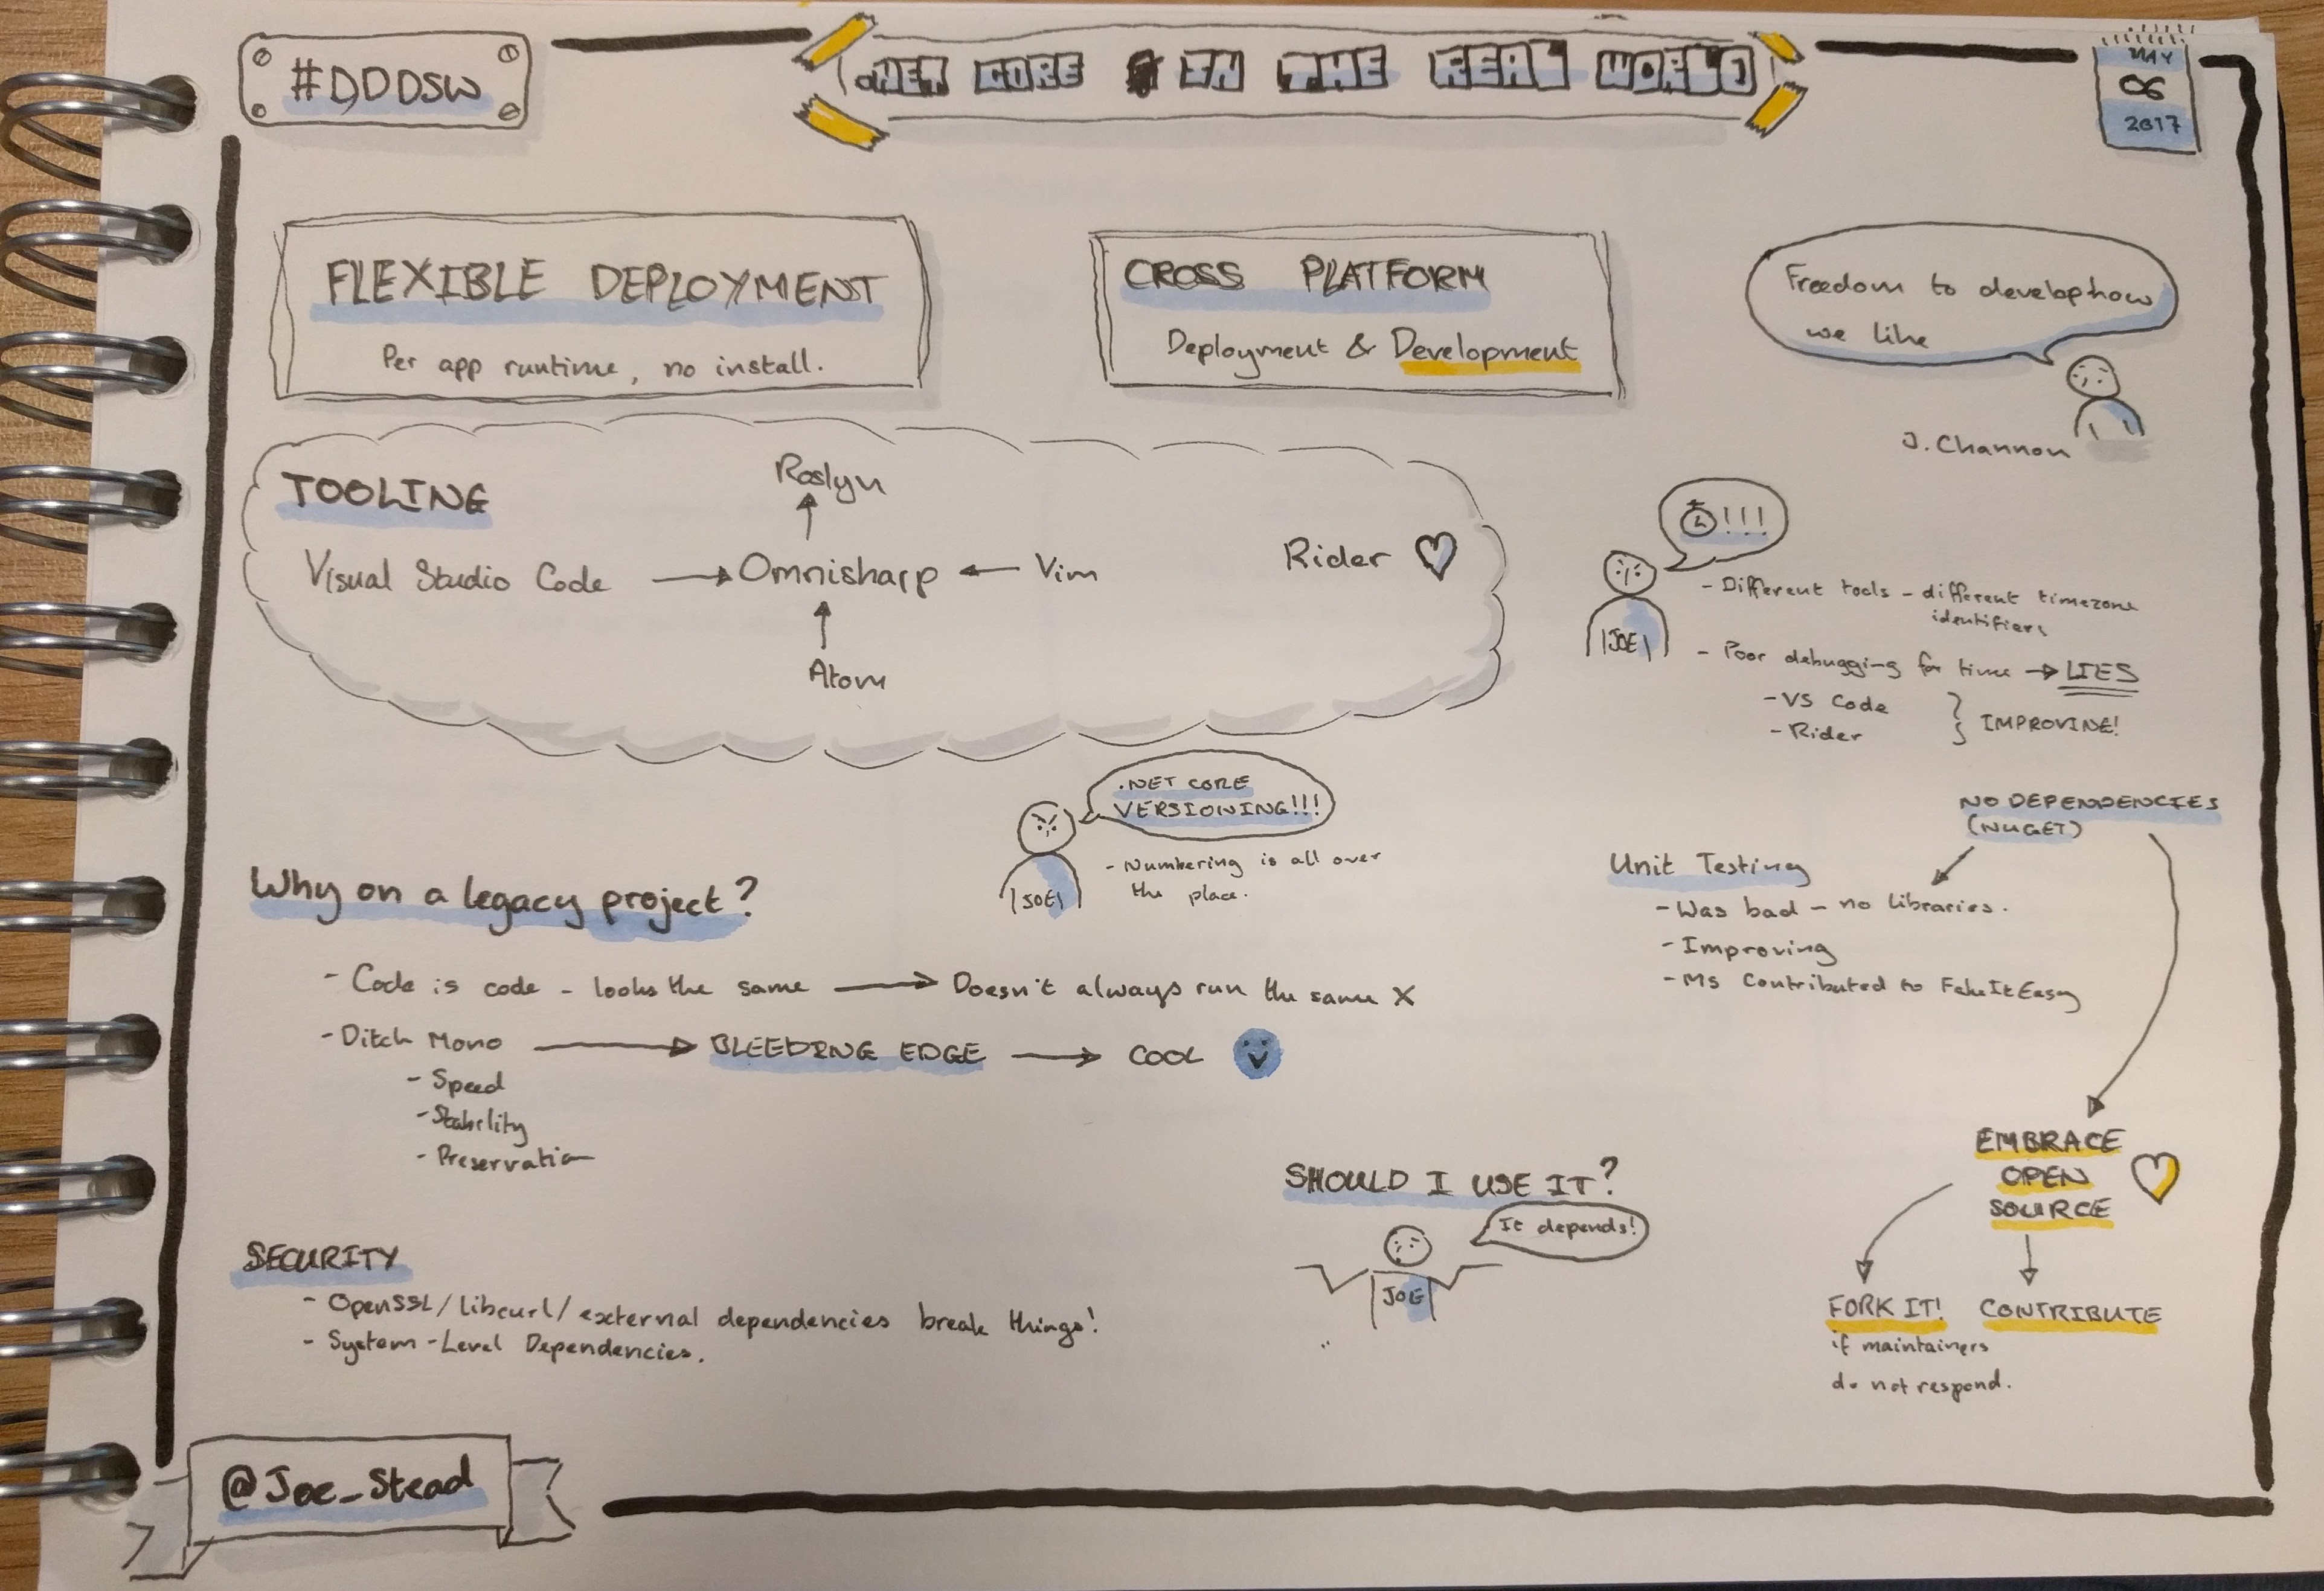 #DDDSW
.NET CORE IN THE REAL WORLD
MAY
06
2017
FLEXIBLE DEPLOYMENT
Per app runtime, no install.
CROSS PLATFORM
Deployment & Development
Freedom to develop how
we like
J. Channon
TOOLING
Roslyn
Visual Studio Code
Omnisharp
Vim
Atom
Rider
!!!
JOE
- Different tools - different timezone
identifiers
- Poor debugging for time → LIES
- VS Code
- Rider
IMPROVING!
.NET CORE
VERSIONING!!!
JOE
- Numbering is all over
the place.
NO DEPENDENCIES
(NUGET)
Unit Testing
- Was bad - no libraries.
- Improving
- Ms Contributed to FakeItEasy
Why on a legacy project?
- Code is code - looks the same → Doesn't always run the same X
- Ditch Mono → BLEEDING EDGE → COOL
- Speed
- Stability
- Preservation
EMBRACE
OPEN
SOURCE
FORK IT!
if maintainers
do not respond.
CONTRIBUTE
SHOULD I USE IT?
It depends!
JOE
SECURITY
- OpenSSL/libcurl/external dependencies break things!
- System-Level Dependencies.
@Joe_Stead